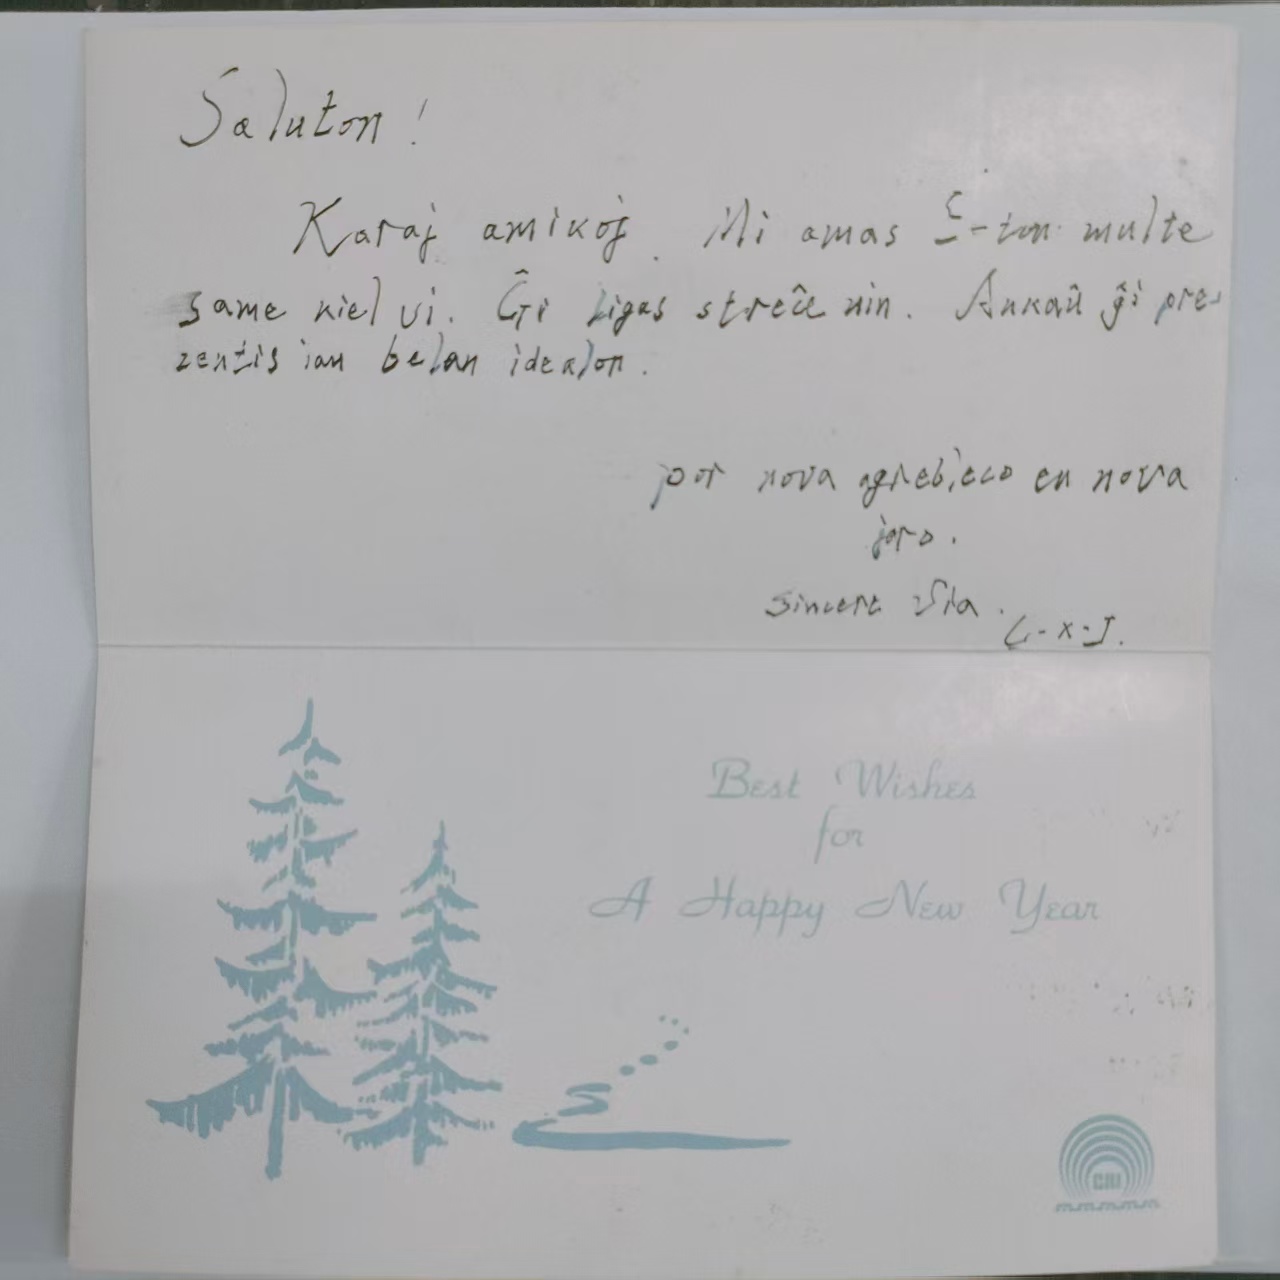 Saluton!
Karaj amikoj. Mi amas E-ton multe
same kiel vi. Ĝi ligas streĉe nin. Ankaŭ ĝi pre-
zentis ian belan idealon.
por nova agrebleco en nova
jaro.
Sincere Via.
L-X-J.
Best Wishes
for
A Happy New Year